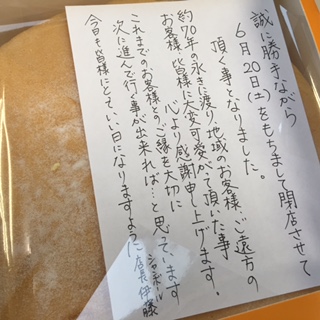 誠に勝手ながら
6月20日(土)をもちまして閉店させて
頂く事となりました。
約70年の永きに渡り、地域のお客様、ご遠方の
お客様 皆様に大変可愛がて頂いた事
心より感謝申し上げます。
これまでのお客様とのご縁を大切に
次に進んで行く事が出来れば…と思っています
今日も皆様にとていい日になりますように
シャルポール
店長 伊藤